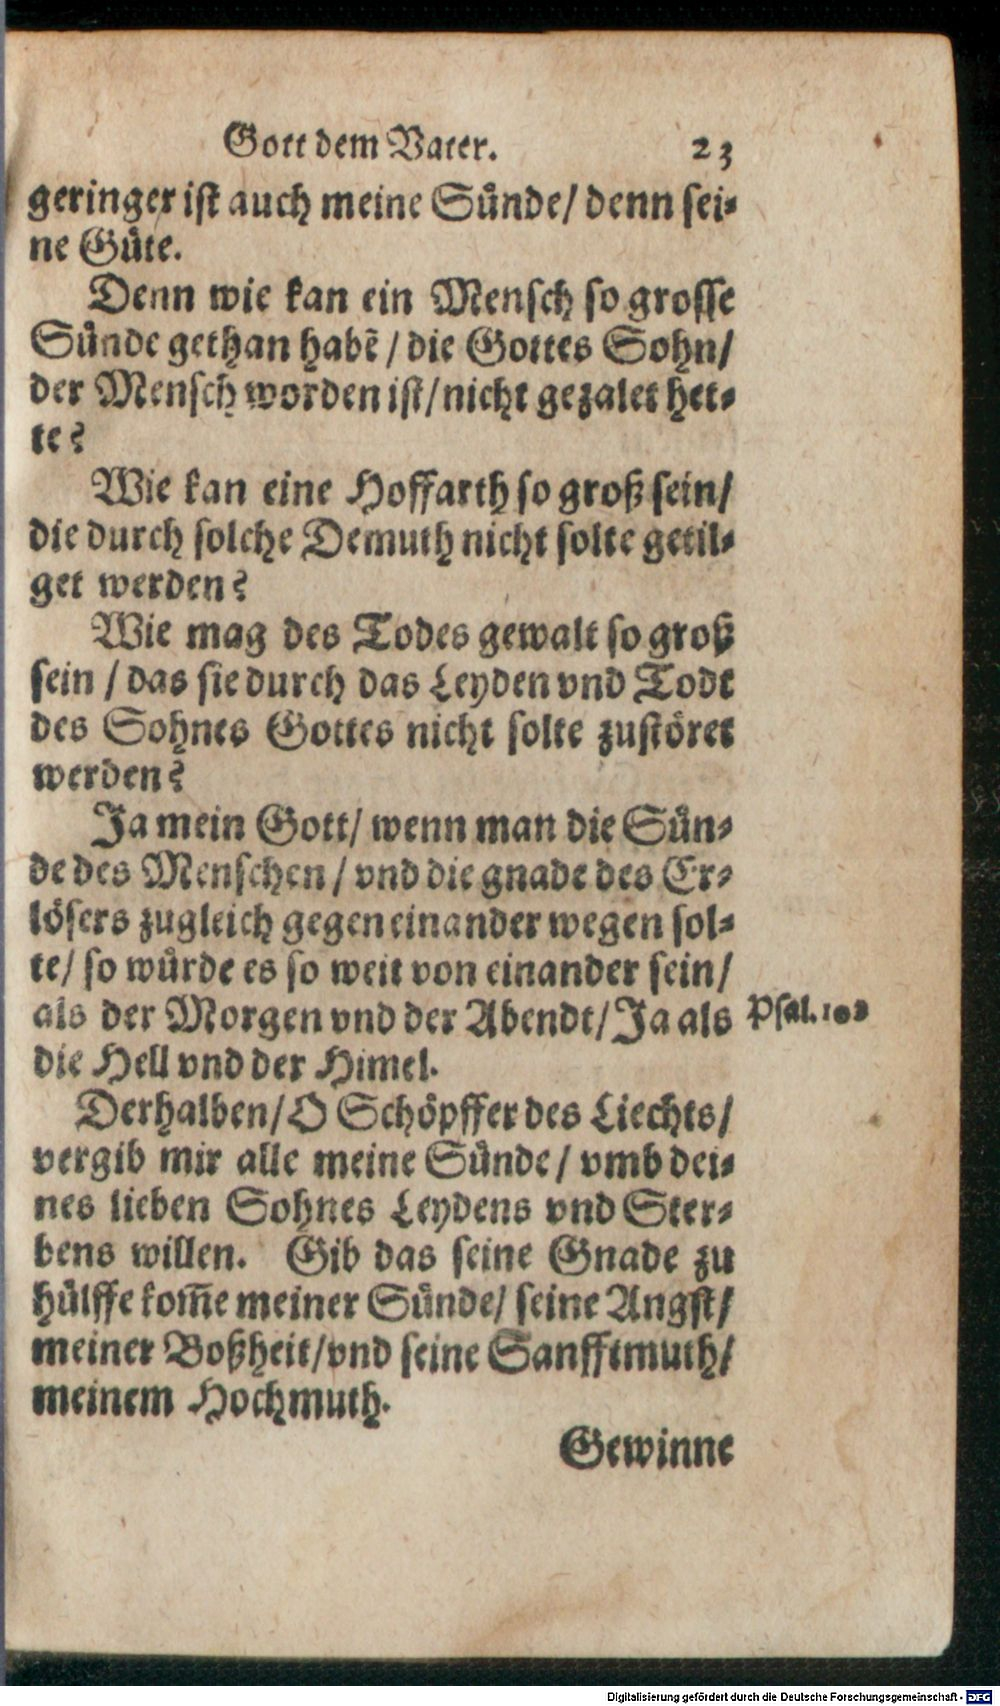 Gott dem Vater. 23
geringer ist auch meine Sünde/ denn sei-
ne Güte.
Denn wie kan ein Mensch so grosse
Sünde gethan habẽ / die Gottes Sohn/
der Mensch worden ist/ nicht gezalet het-
te?
Wie kan eine Hoffarth so groß sein/
die durch solche Demuth nicht solte getil-
get werden?
Wie mag des Todes gewalt so groß
sein / das sie durch das Leyden vnd Todt
des Sohnes Gottes nicht solte zustöret
werden?
Ja mein Gott/ wenn man die Sün-
de des Menschen / vnd die gnade des Er-
lösers zugleich gegen einander wegen sol-
te/ so würde es so weit von einander sein/
als der Morgen vnd der Abendt/ Ja als
Psal. 103
die Hell vnd der Himel.
Derhalben/ O Schöpffer des Liechts/
vergib mir alle meine Sünde/ vmb dei-
nes lieben Sohnes Leydens vnd Ster-
bens willen. Gib das seine Gnade zu
hülffe kom̃e meiner Sünde/ seine Angst/
meiner Boßheit/ vnd seine Sanfftmuth/
meinem Hochmuth.
Gewinne
Digitalisierung gefördert durch die Deutsche Forschungsgemeinschaft - DFG